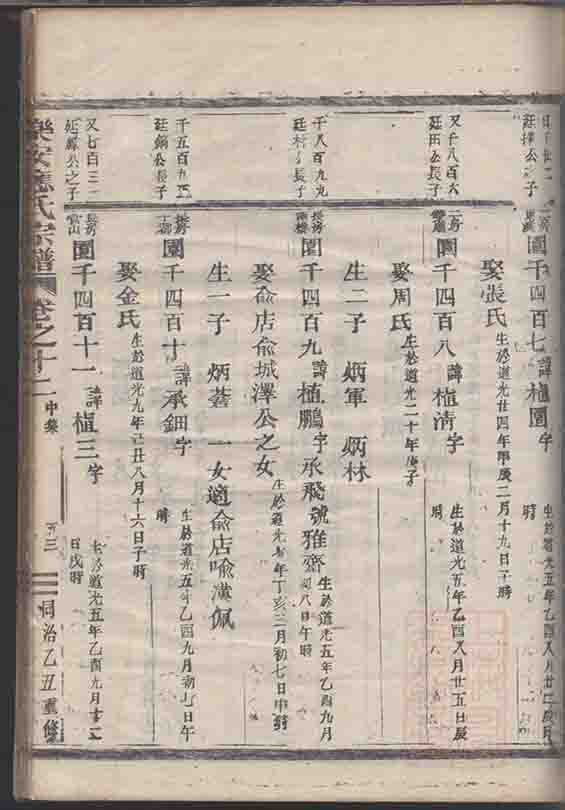 二房
圍千四百七 諱植圍 字
生於道光五年乙酉八月廿二
時
娶張氏 生於道光廿四年甲辰二月十九日子時
又千八百六
廷田公長子
二房
圍千四百八 諱植清 字
生於道光五年乙酉八月廿五日辰
時
娶周氏 生於道光二十年庚子
生二子 炳軍 炳林
千八百九九
廷 公長子
長房
圍千四百九 諱植鵬 字丞飛 號雅齋 生於道光五年乙酉九月
初八日午時
娶俞店俞城澤公之女 生於道光 年丁亥三月初七日申時
生一子 炳蒼 一女適俞店喻漢佩
千五百九五
廷鎬公長子
圍千四百十 諱承鈿 字
生於道光五年乙酉九月初七日午
時
娶金氏 生於道光九年己丑八月十六日子時
又七百三二
廷 公之子
長房
圍千四百十一 諱植三 字
生於道光五年乙酉九月十二
日戌時
樂安 氏宗譜 卷之十二 中集 三 同治乙丑重修